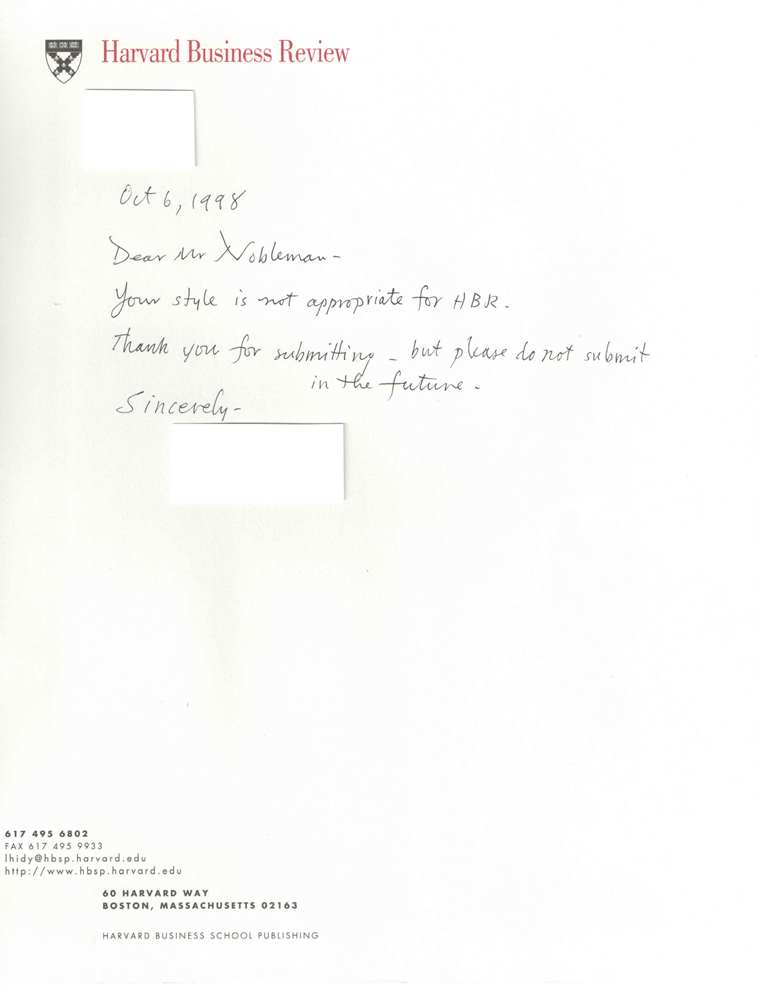 Harvard Business Review
Oct 6, 1998
Dear Mr Nobleman-
Your style is not appropriate for HBR.
Thank you for submitting - but please do not submit
in the future.
Sincerely-
617 495 6802
FAX 617 495 9933
lhidy@hbsp.harvard.edu
http://www.hbsp.harvard.edu
60 HARVARD WAY
BOSTON, MASSACHUSETTS 02163
HARVARD BUSINESS SCHOOL PUBLISHING